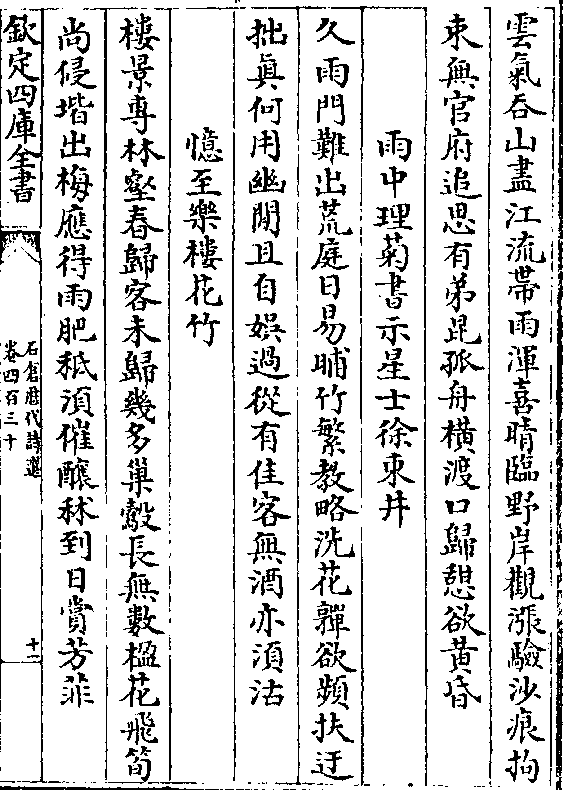 雲氣吞山盡江流帶雨渾喜晴臨野岸觀漲驗沙痕拘
束無官府追思有弟昆孤舟橫渡口歸憇欲黄昏
雨中理菊書示星士徐東井
久雨門難出荒庭日易晡竹繁教略洗花嚲欲頻扶迂
拙眞何用幽閒且自娯過從有佳客無酒亦湏沽
憶至樂樓花竹
樓景專林壑春歸客未歸幾多巢鷇長無數槛花飛筍
尚侵堦出梅應得雨肥秪湏催釀秫到日賞芳菲
欽定四庫全書
石倉歴代詩選
卷四百三十
十一